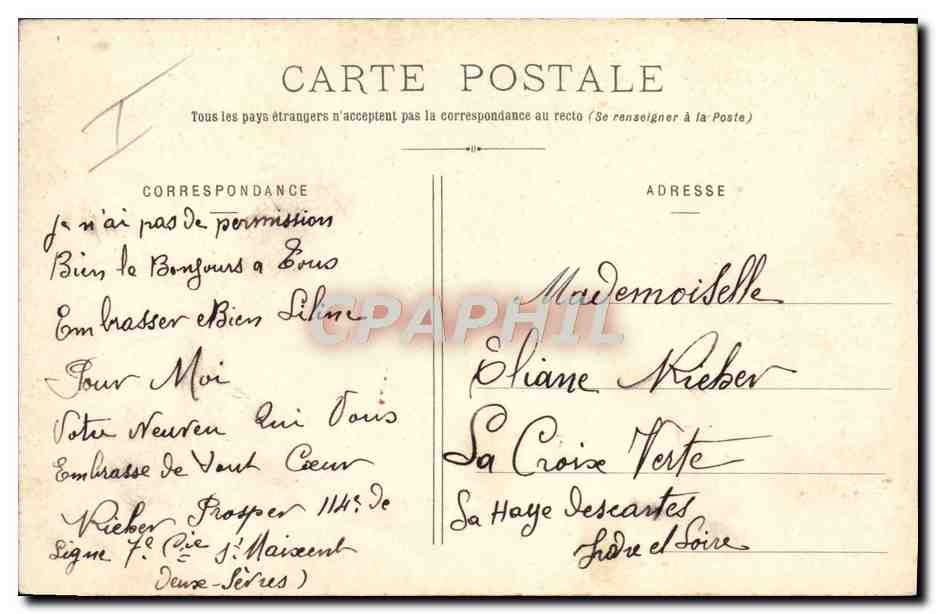 CARTE POSTALE
Tous les pays étrangers n'acceptent pas la correspondance au recto (Se renseigner à la Poste)
CORRESPONDANCE
Je n'ai pas de permission
Bien le Bonjours a Tous
Embrasser Bien Liline
Pour Moi
Votre Neuveu Qui Vous
Embrasse de Tout Cœur
Rieber Prosper 114e de
Ligne 7e Cie St Maixent
Deux-Sèvres)
ADRESSE
Mademoiselle
Eliane Rieber
La Croix Verte
La Haye Descartes
Indre et Loire
CPAPHIL